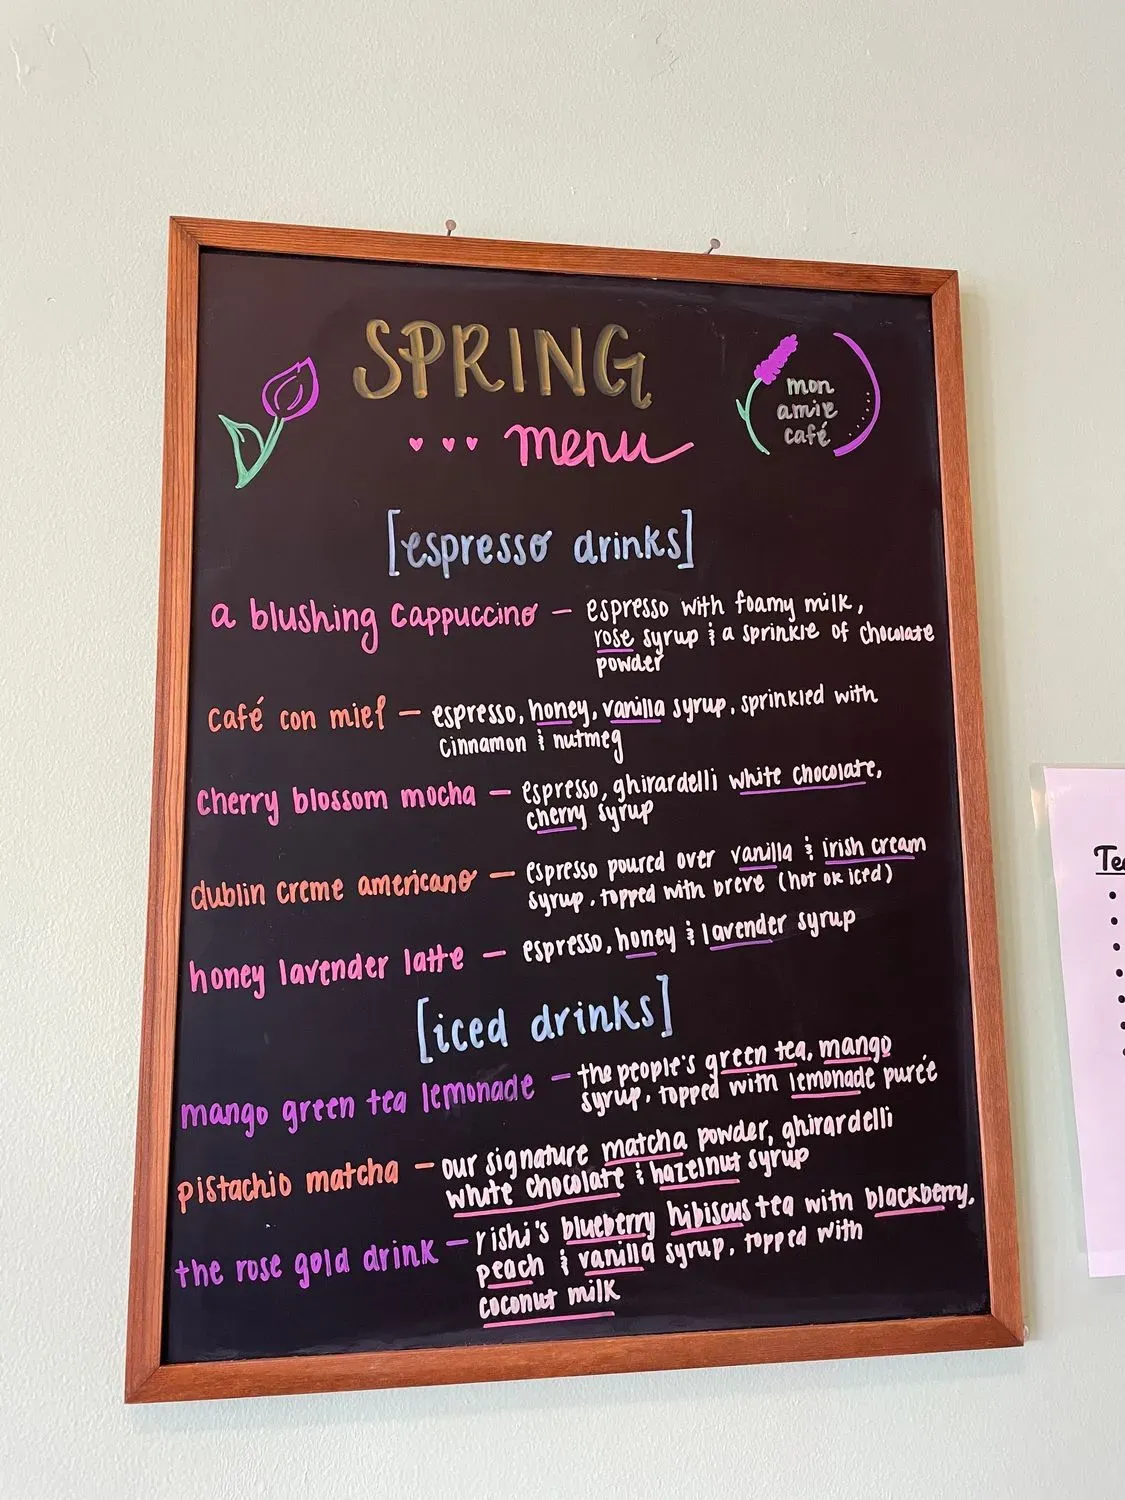 SPRING
menu
mon
amie
café
[espresso drinks]
a blushing cappuccino — espresso with foamy milk,
rose syrup & a sprinkle of chocolate
powder
café con miel — espresso, honey, vanilla syrup, sprinkled with
cinnamon & nutmeg
cherry blossom mocha — espresso, ghirardelli white chocolate,
cherry syrup
dublin creme americano — espresso poured over vanilla & irish cream
syrup, topped with breve (hot or iced)
honey lavender latte — espresso, honey & lavender syrup
[iced drinks]
mango green tea lemonade — the people's green tea, mango
syrup, topped with lemonade purée
pistachio matcha — our signature matcha powder, ghirardelli
white chocolate & hazelnut syrup
the rose gold drink — rishi's blueberry hibiscus tea with blackberry,
peach & vanilla syrup, topped with
coconut milk